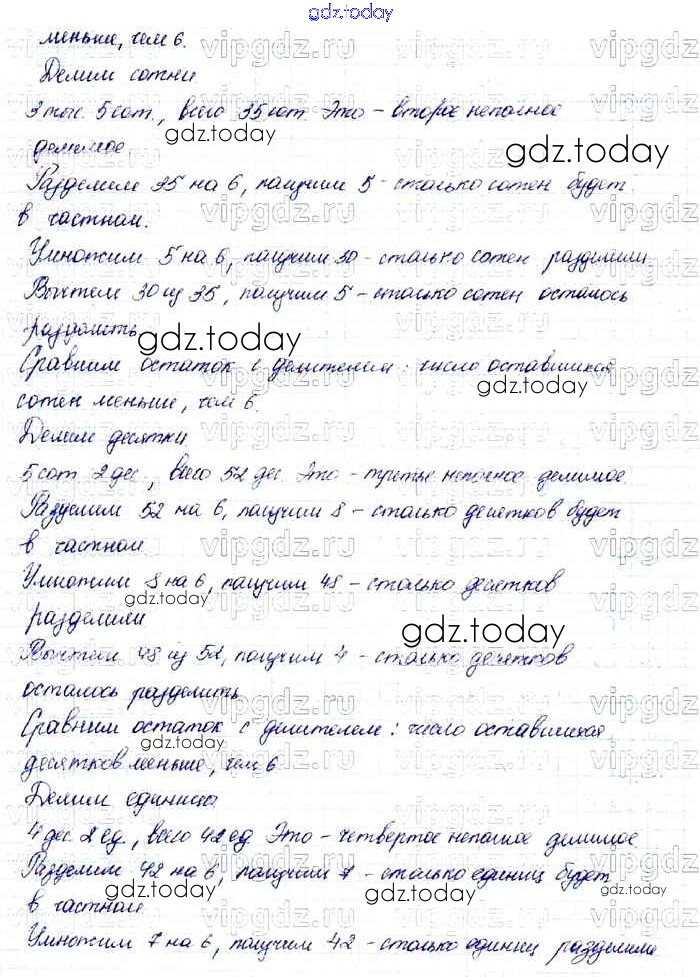 gdz.today
меньше, чем 6.
Делим сотни
3 тыс. 5 сот., всего 35 сот. Это - второе неполное
делимое.
Разделим 35 на 6, получим 5 - столько сотен будет
в частном.
Умножим 5 на 6, получим 30 - столько сотен разделили.
Вычтем 30 из 35, получим 5 - столько сотен осталось
разделить.
Сравним остаток с делителем: число оставшихся
сотен меньше, чем 6.
Делим десятки
5 сот. 2 дес., всего 52 дес. Это - третье неполное делимое.
Разделим 52 на 6, получим 8 - столько десятков будет
в частном.
Умножим 8 на 6, получим 48 - столько десятков
разделили
Вычтем 48 из 52, получим 4 - столько десятков
осталось разделить
Сравним остаток с делителем: число оставшихся
десятков меньше, чем 6
Делим единицы
4 дес. 2 ед., всего 42 ед. Это - четвертое неполное делимое
Разделим 42 на 6, получим 7 - столько единиц будет
в частном
Умножим 7 на 6, получим 42 - столько единиц разделили